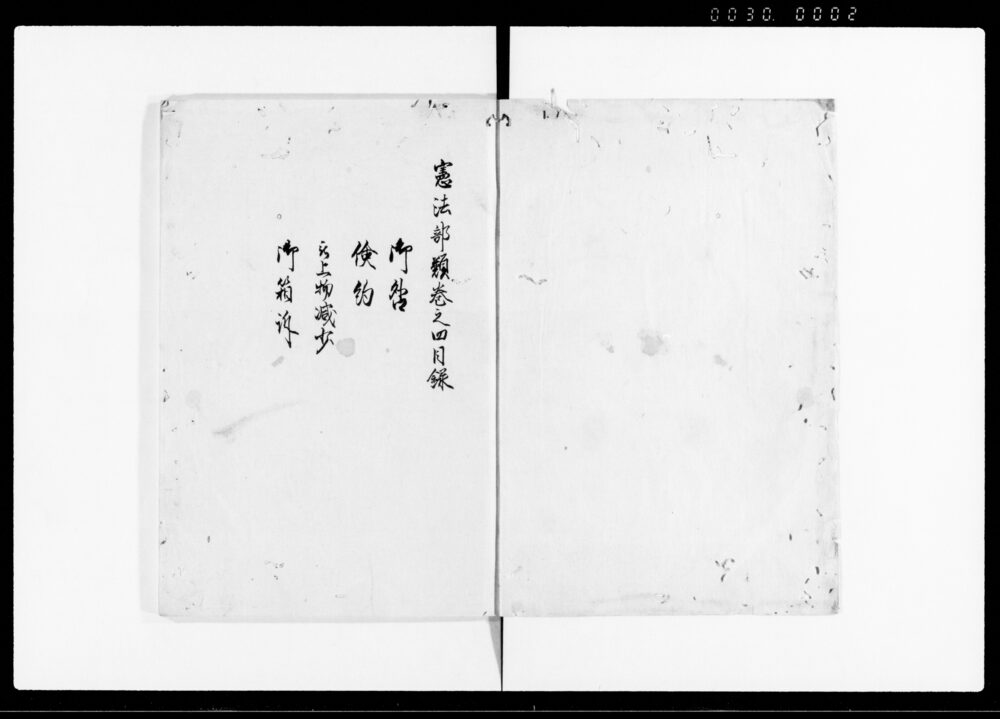 0030. 0002
憲法部類巻之四目録
御咎
倹約
献上物減少
御箱訴